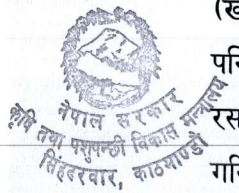 (ख
परि
रस
गरि
नेपाल सरकार
कृषि तथा पशुपन्छी विकास मन्त्रालय
सिंहदरवार, काठमाण्डौ